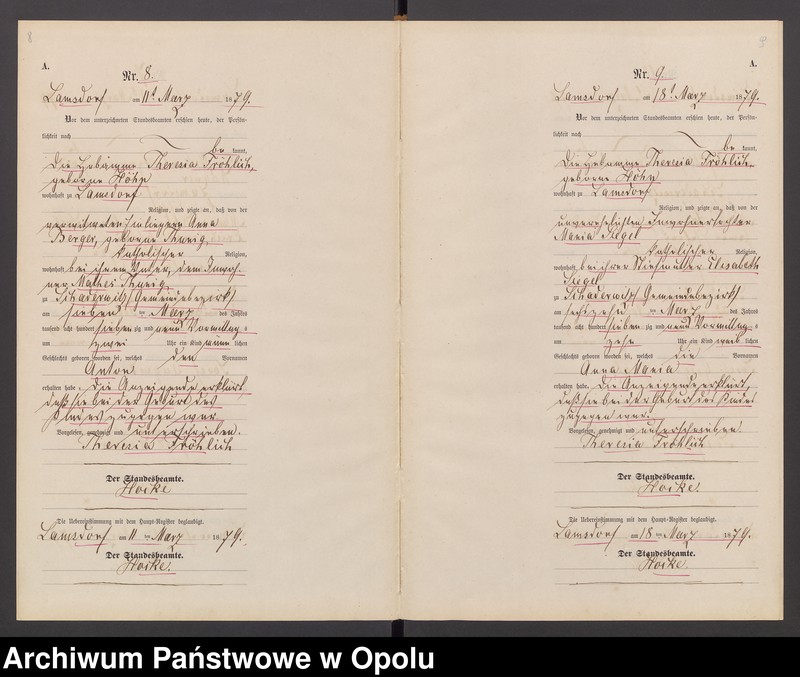 8
A.
Nr. 8.
Lamsdorf am 11t März 1879.
Vor dem unterzeichneten Standesbeamten erschien heute, der Persön-
lichkeit nach
be kannt,
die Hebamme Theresia Fröhlich,
geborne Höhn
wohnhaft zu Lamsdorf
Religion, und zeigte an, daß von der
verwittweten Inliegerin Anna
Berger, geborne
katholischer Religion,
wohnhaft bei ihrem Vater, dem Inwoh-
ner Mathes
zu Schaderwitz (Gemeindebezirk)
am sieben ten März des Jahres
tausend acht hundert sieben zig und neun Vormittags
um zwei Uhr ein Kind männ lichen
Geschlechts geboren worden sei, welches den Vornamen
Anton
erhalten habe. Die Anzeigende erklärt,
daß sie bei der Geburt des
Kindes zugegen war
Vorgelesen, genehmigt und unterschrieben.
Theresia Fröhlich
Der Standesbeamte.
Hocke
Die Uebereinstimmung mit dem Haupt-Register beglaubigt.
Lamsdorf am 11 ten März 1879.
Der Standesbeamte.
Hocke.
9
A.
Nr. 9.
Lamsdorf am 18t März 1879.
Vor dem unterzeichneten Standesbeamten erschien heute, der Persön-
lichkeit nach
be kannt,
die Hebamme Theresia Fröhlich,
geborne Höhn
wohnhaft zu Lamsdorf
Religion, und zeigte an, daß von der
unverehelichten Inwohnertochter
Maria Siegel
katholischer Religion,
wohnhaft bei ihrer Stiefmutter Elisabeth
Siegel
zu Schaderwitz (Gemeindebezirk)
am sechszehn ten März des Jahres
tausend acht hundert sieben zig und neun Vormittags
um zehn Uhr ein Kind weib lichen
Geschlechts geboren worden sei, welches die Vornamen
Anna Maria
erhalten habe. Die Anzeigende erklärt,
daß sie bei der Geburt des Kindes
zugegen war.
Vorgelesen, genehmigt und unterschrieben
Theresia Fröhlich
Der Standesbeamte.
Hocke.
Die Uebereinstimmung mit dem Haupt-Register beglaubigt.
Lamsdorf am 18 ten März 1879.
Der Standesbeamte.
Hocke.
Archiwum Państwowe w Opolu